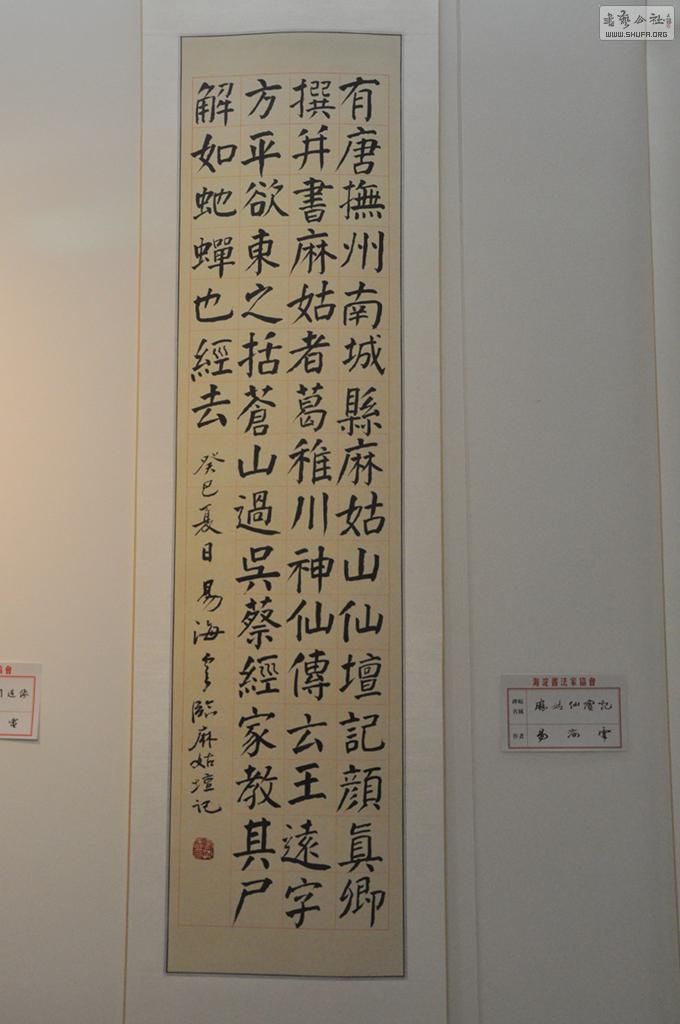 有唐撫州南城縣麻姑山仙壇記顔眞卿
撰并書麻姑者葛稚川神仙傳云王遠字
方平欲東之括蒼山過吳蔡經家教其尸
解如虵蟬也經去
癸巳夏日易海雲臨麻姑壇記
海淀書法家協會
碑帖名稱
麻姑仙壇記
作者
易海雲
協會
書藝公社
WWW.SHUFA.ORG